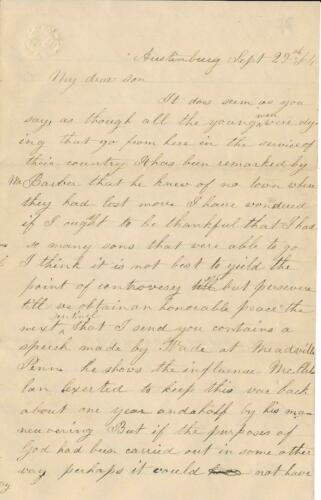 Austinburg Sept 29th 64
My dear son
It does seem as you
say, as though all the young men were dy-
ing that go from here in the service of
their country It has been remarked by
Mr Barber that he knew of no town where
they had lost more I have wondred
if I ought to be thankful that I has
so many sons that were able to go
I think it is not best to yield the
point of controversy but persevere
till we obtain an honorable peace the
next that I send you contains a
speech made by Wade at Meadville
Penn he shows the influence McClel
lan exerted to keep this war back
about one year and a half by his ma-
neuvering But if the purposes of
God had bus carried out in some other
way perhaps it would not have